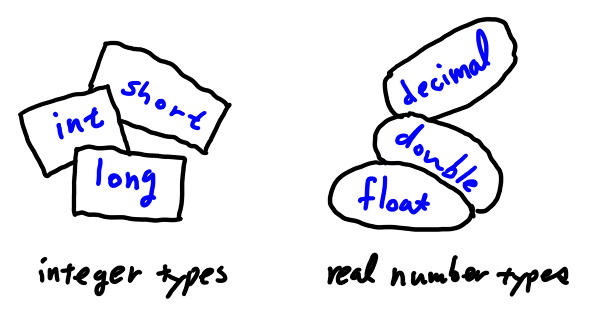 short
int
long
integer types
decimal
double
float
real number types